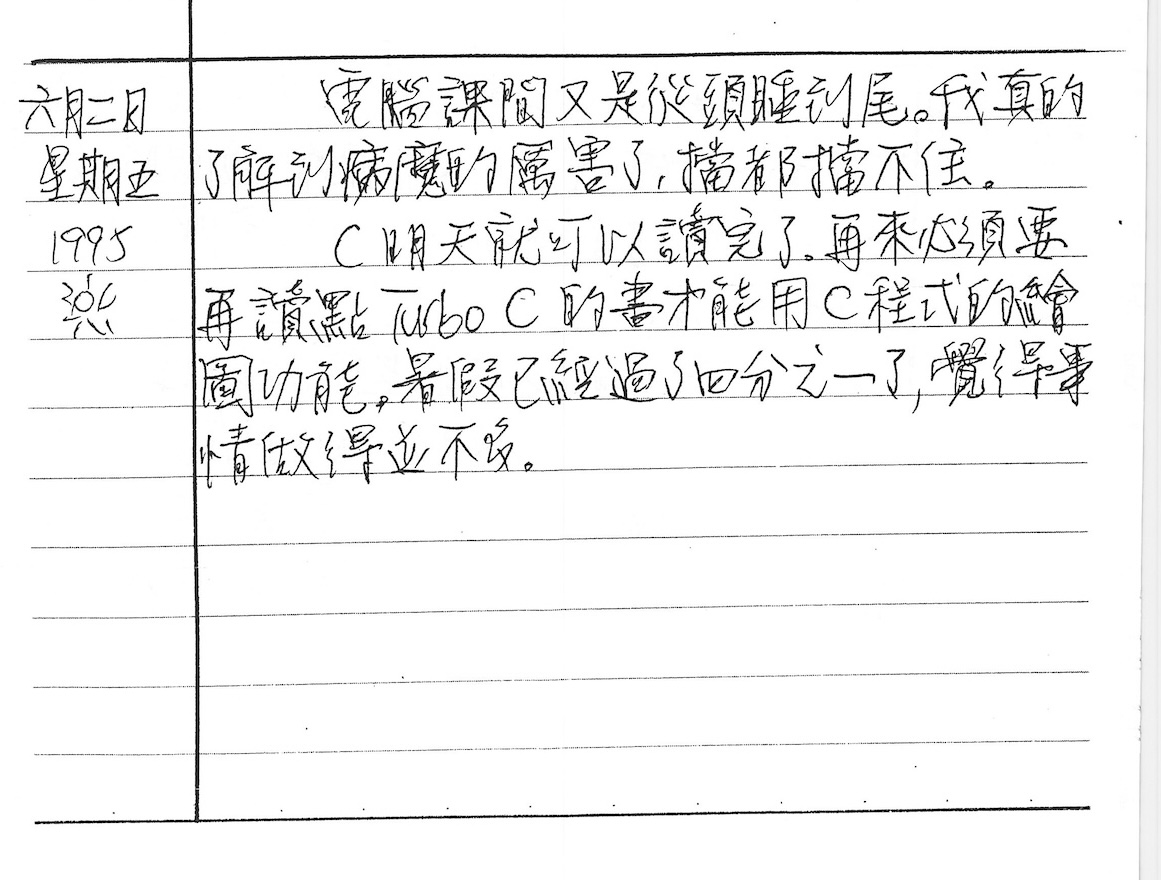 六月二日
星期五
1995
電腦課間又是從頭睡到尾。我真的
了解到病魔的厲害了,擋都擋不住。
C明天就可以讀完了。再來必須要
再讀點 Turbo C 的書才能用C程式的繪
圖功能。暑假已經過了四分之一了,覺得事
情做得並不多。